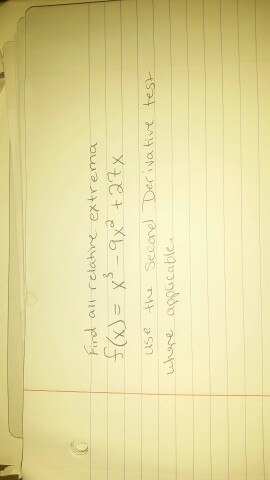 Find all relative extrema
f(x) = x³ - 9x² + 27x
use the Second Derivative test
where applicable.